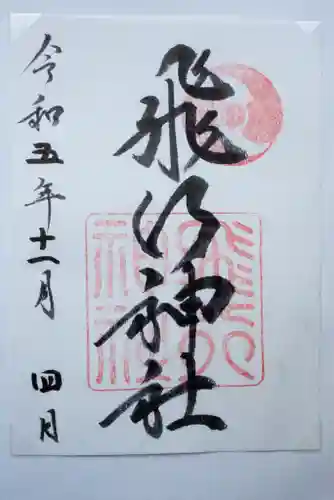 飛行神社
飛行
神社
令和五年十一月 四日